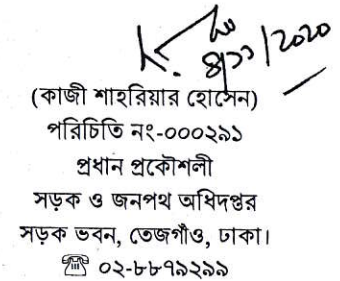 ৪/১১/২০২০
(কাজী শাহরিয়ার হোসেন)
পরিচিতি নং-০০০২৯১
প্রধান প্রকৌশলী
সড়ক ও জনপথ অধিদপ্তর
সড়ক ভবন, তেজগাঁও, ঢাকা।
☎ ০২-৮৮৭৯২৯৯